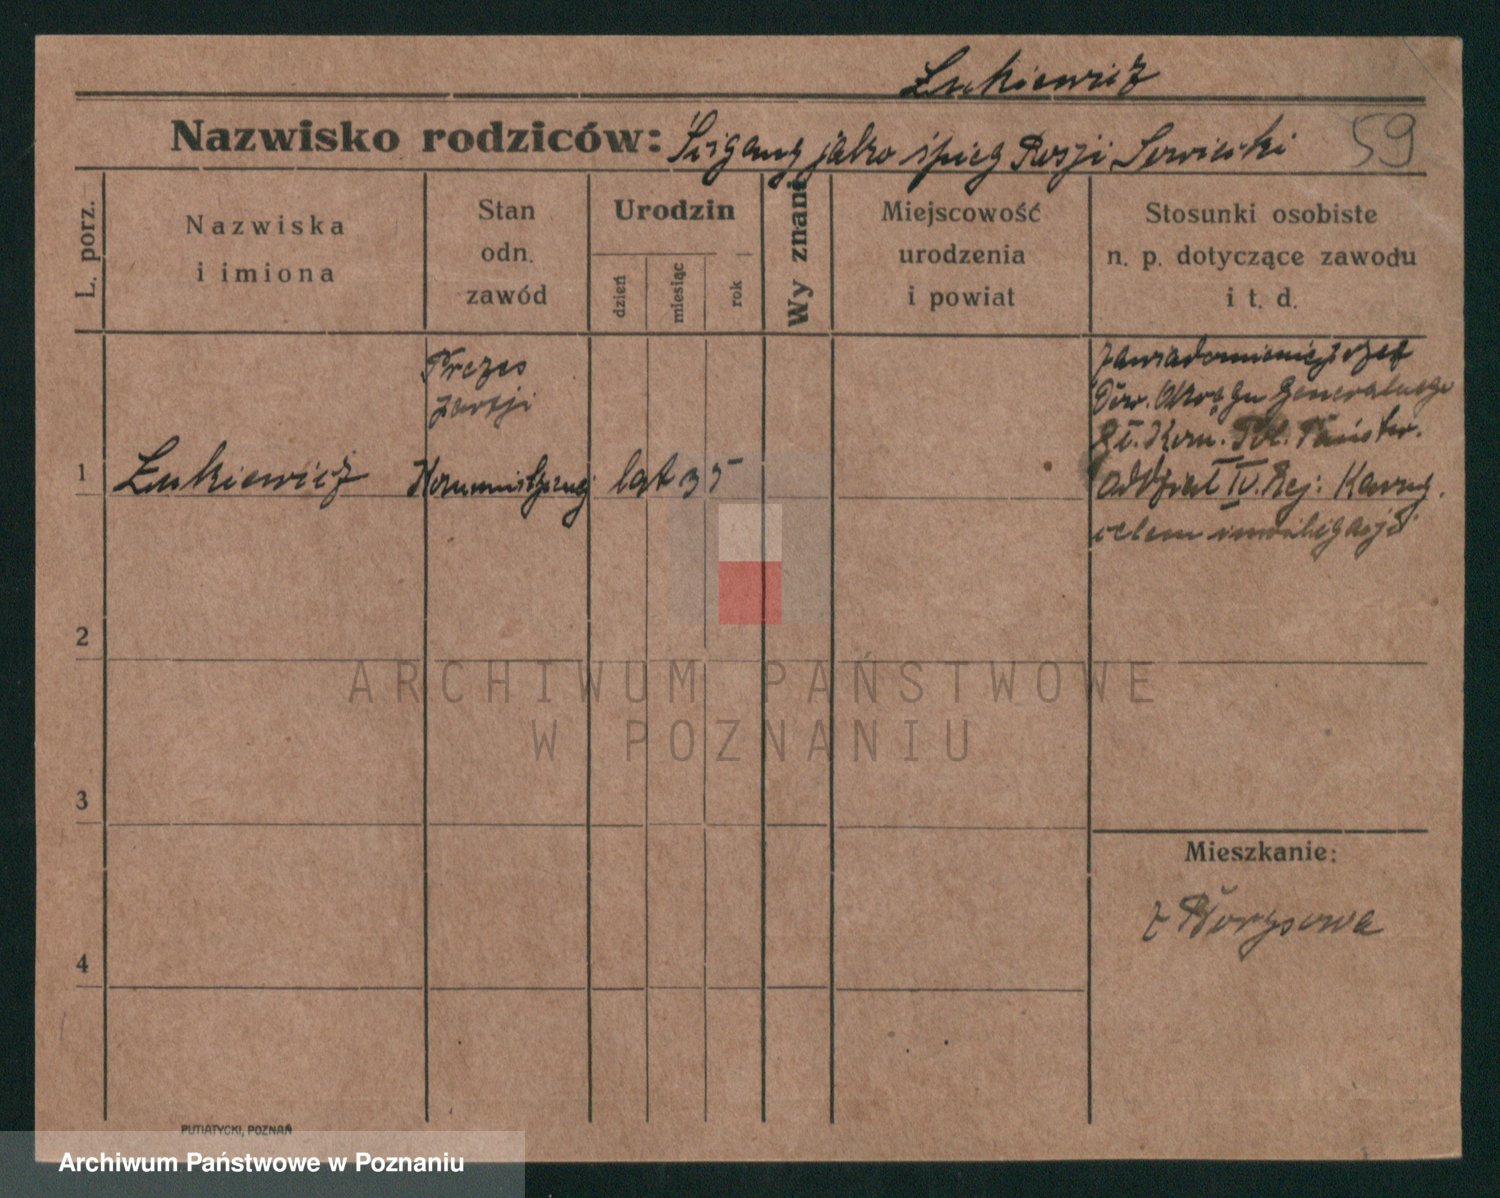 Łukiewicz
Nazwisko rodziców: Ścigany jako śpieg Rosji Sowiecki
59
L. porz.
Nazwiska
i imiona
Stan
odn.
zawód
Urodzin
dzień
miesiąc
rok
Wyznani
Miejscowość
urodzenia
i powiat
Stosunki osobiste
n. p. dotyczące zawodu
i t. d.
Prezes
partji
1 Łukiewicz Komunistycznej lat 35
Dow. Okręgu Generalnego
Pol. Państw.
oddział IV. Rej:
celem
2
3
4
Mieszkanie:
z Borysowa
PUTIATYCKI, POZNAŃ
ARCHIWUM PAŃSTWOWE
W POZNANIU
Archiwum Państwowe w Poznaniu